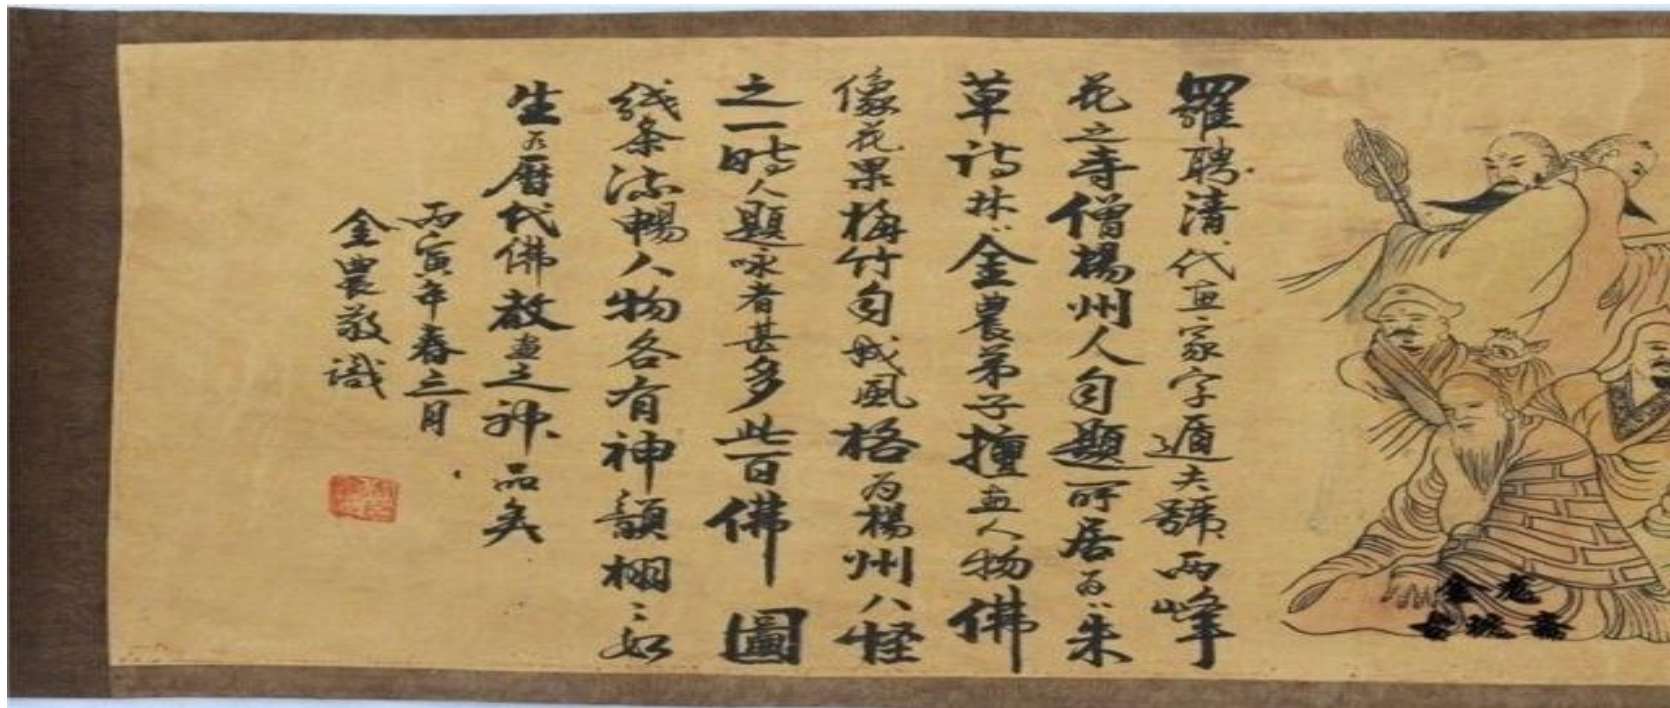 羅聘清代画家字遁夫號两峰
花之寺僧楊州人自題所居为“朱
草诗林”金農弟子擅画人物佛
像花果梅竹自成風格为楊州八怪
之一時人題咏者甚多此百佛圖
线条流暢人物各有神韻栩〻如
生乃曆代佛教画之神品矣
丙寅年春三月
金農敬識
金龙
古玩斋